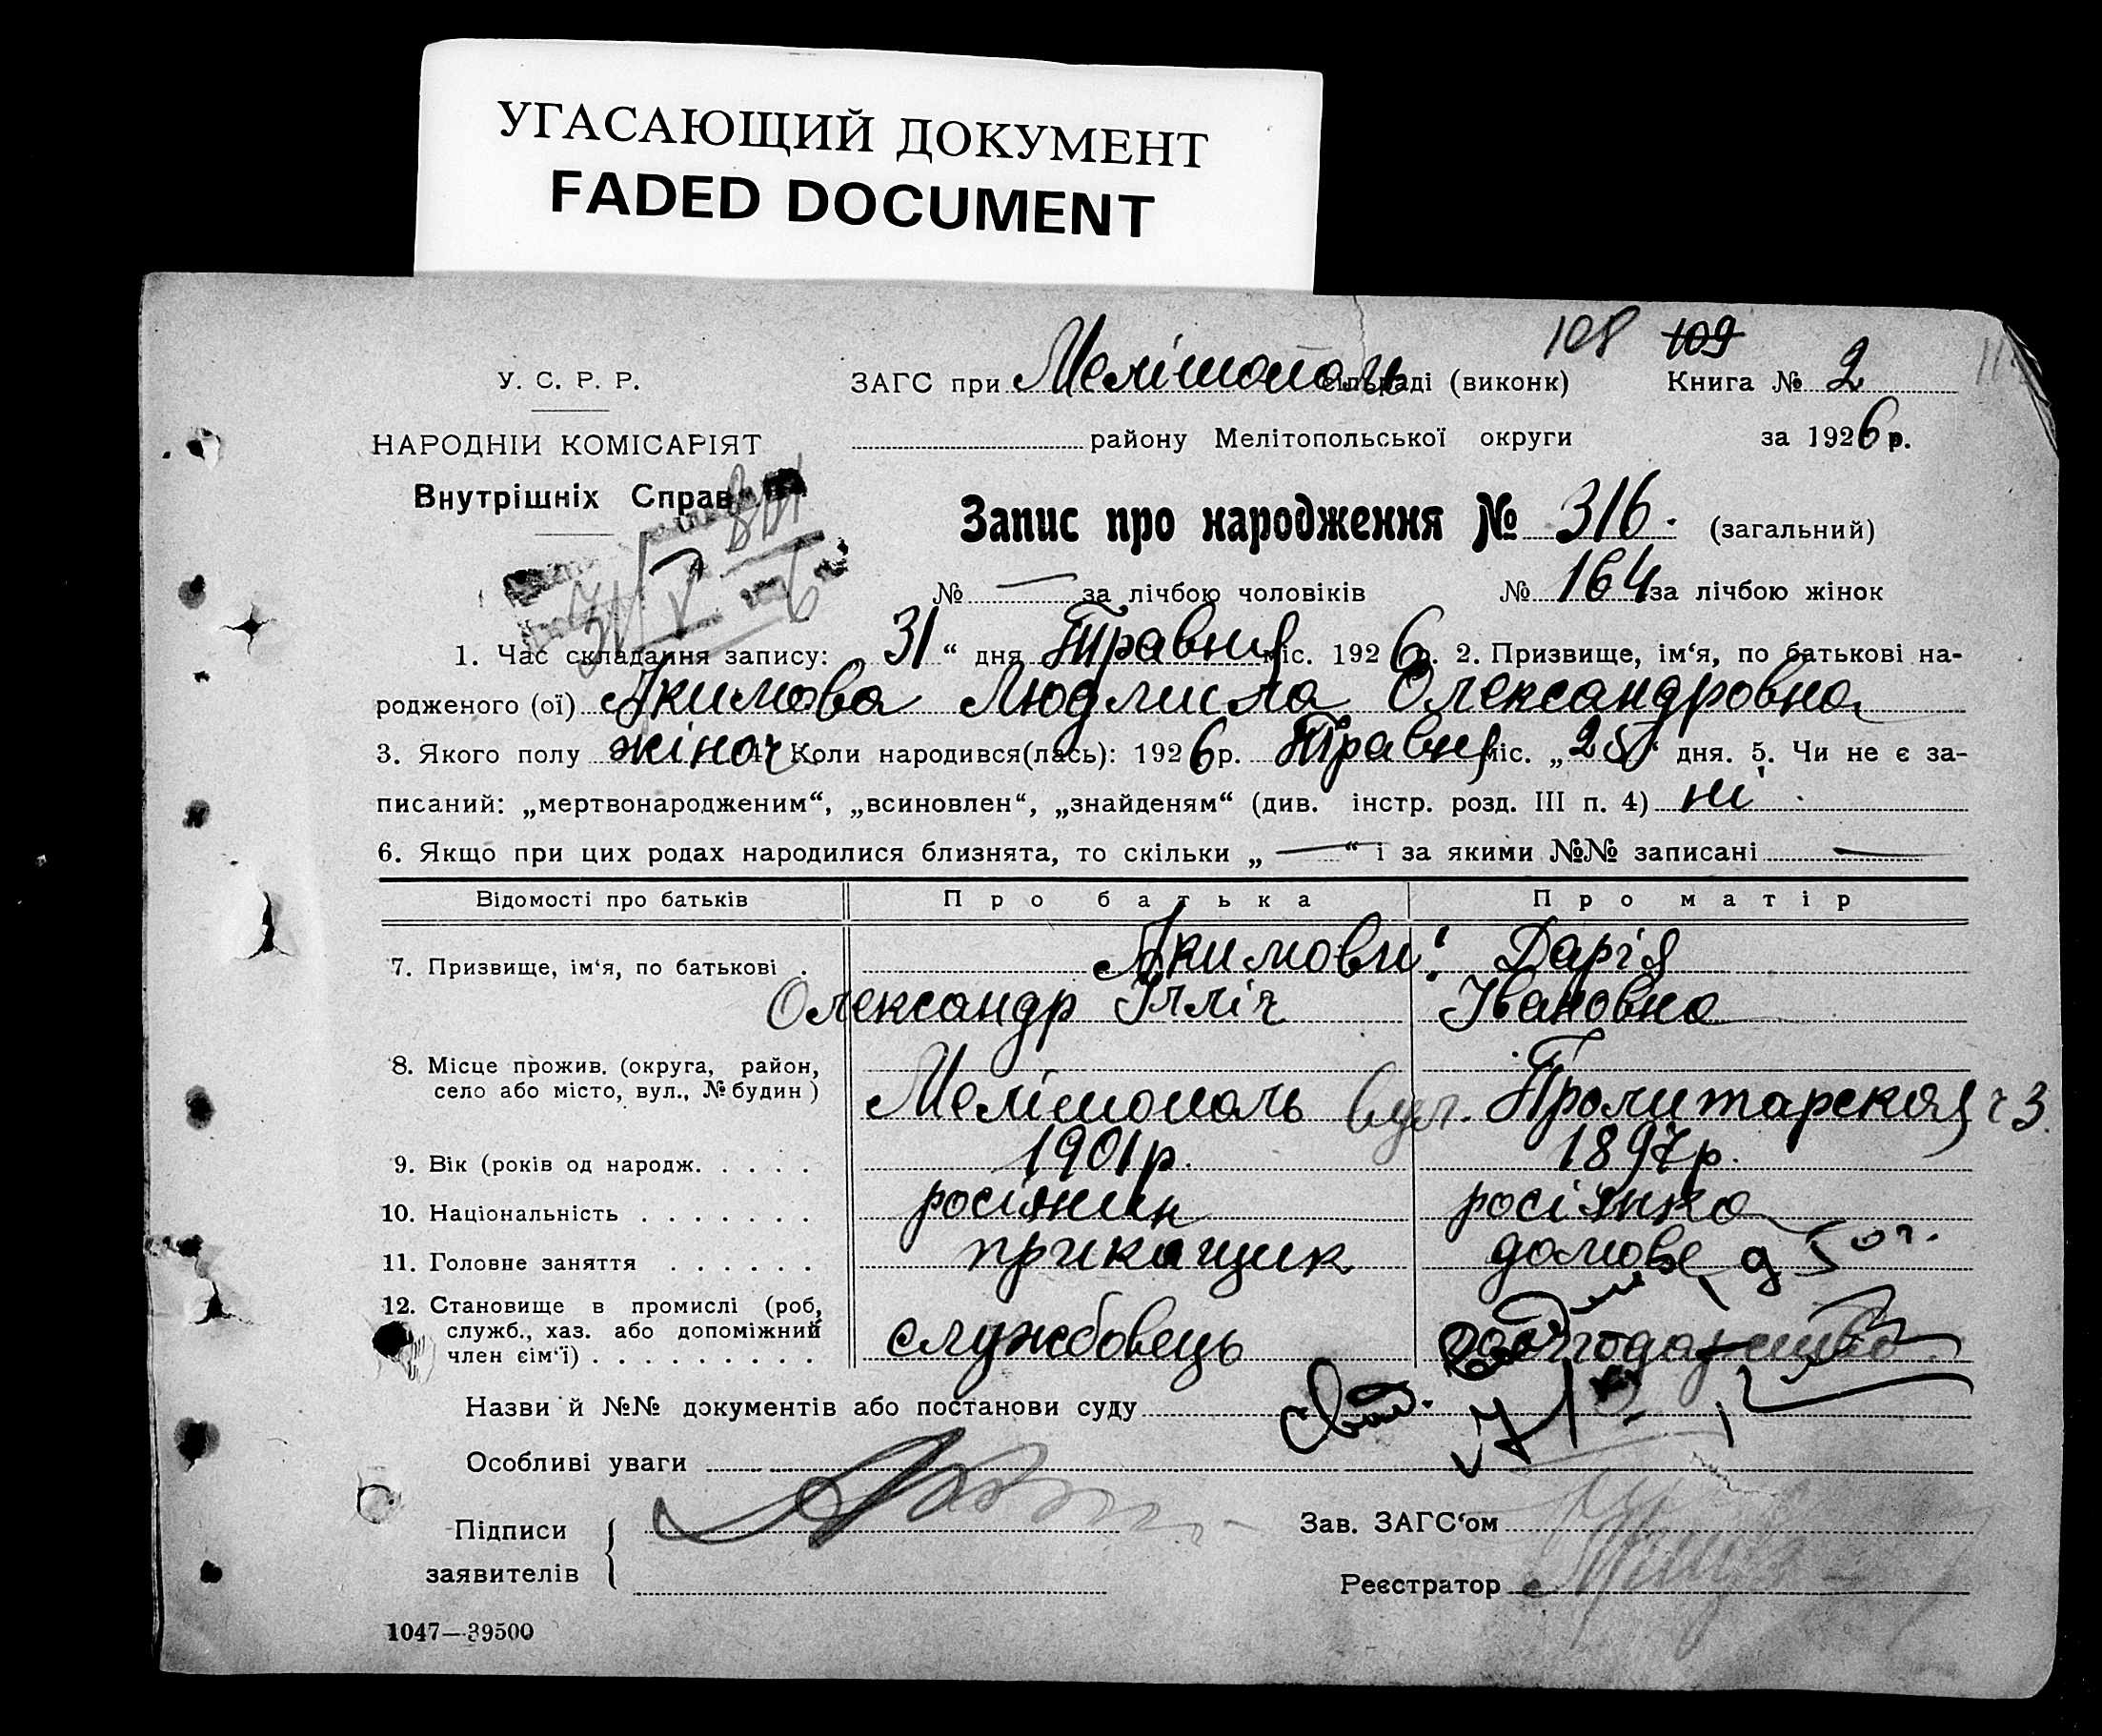 УГАСАЮЩИЙ ДОКУМЕНТ
FADED DOCUMENT
108 109
У. С. Р. Р.
ЗАГС при Мелітополь сільраді (виконк) Книга № 2
НАРОДНІЙ КОМІСАРІЯТ
району Мелітопольської округи за 1926 р.
Внутрішніх Справ
Запис про народження № 316. (загальний)
№ — за лічбою чоловіків № 164 за лічбою жінок
1. Час складання запису: „ 31 “ дня Травня міс. 1926 р. 2. Призвище, ім‘я, по батькові на-
родженого (ої) Якимова Людмила Олександровна
3. Якого полу жіноч. 4. Коли народився(лась): 1926 р. Травня міс. „ 25 “ дня. 5. Чи не є за-
писаний: „мертвонародженим“, „всиновлен“, „знайденям“ (див. інстр. розд. III п. 4) ні
6. Якщо при цих родах народилися близнята, то скільки „ — “ і за якими №№ записані —
Відомості про батьків Про батька Про матір
7. Призвище, ім‘я, по батькові . Якимови: Дарія
Олександр Ілліч Івановна
8. Місце прожив. (округа, район,
село або місто, вул., № будин ) Мелітополь вул. Пролитарская ч 3.
9. Вік (років од народж. . . . . 1901р. 1897р.
10. Національність . . . . . . . росіянин росіянка
11. Головне заняття . . . . . . прикащик домове
12. Становище в промислі (роб,
служб., хаз. або допоміжний
член сім‘ї) . . . . . . . . . службовець
Назви й №№ документів або постанови суду
Особливі уваги
Підписи
заявителів
Зав. ЗАГС‘ом
Реєстратор
1047—39500